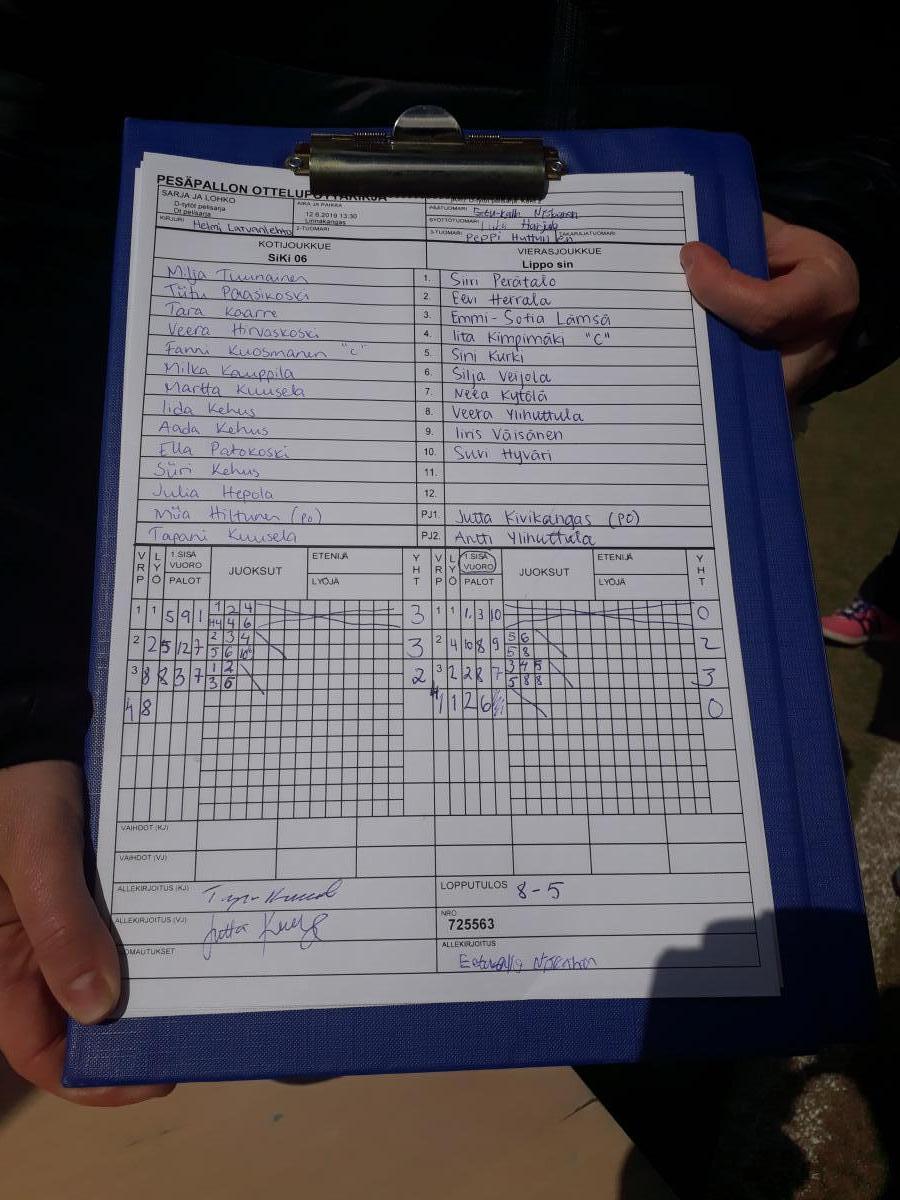 PESÄPALLON OTTELUPÖYTÄKIRJA
SARJA JA LOHKO
D-tytöt pelisarja
AIKA JA PAIKKA
12.6.2019 13:30
Linnakangas
PÄÄTUOMARI
SYÖTTÖTUOMARI
KIRJURI Helmi
2-TUOMARI
3-TUOMARI Peppi Huttunen
TAKARAJATUOMARI
KOTIJOUKKUE VIERASJOUKKUE
SiKi 06 Lippo sin
Milja Tuunainen 1. Siiri Perätalo
Tiitu Parasikoski 2. Eevi Herrala
Tara Kaarre 3. Emmi-Sofia Lämsä
Veera Hirvaskoski 4. Iita Kimpimäki "C"
Fanni Kuosmanen "C" 5. Sini Kurki
Milka Kauppila 6. Silja Veijola
Martta Kuusela 7. Neea Kytölä
Iida Kehus 8. Veera Ylihuttula
Aada Kehus 9. Iiris Väisänen
Ella Patokoski 10. Suvi Hyväri
Siiri Kehus 11.
Julia Hepola 12.
Miia Hiltunen (PO) PJ1. Jutta Kivikangas (PO)
Tapani Kuusela PJ2. Antti Ylihuttula
VRP LYÖ 1.SISÄ VUORO PALOT JUOKSUT ETENIJÄ LYÖJÄ YHT VRP LYÖ 1.SISÄ VUORO PALOT JUOKSUT ETENIJÄ LYÖJÄ YHT
1 1 5 9 1 1 2 4 3 1 1 1 3 10 0
4 6
2 2 5 12 7 2 3 4 3 2 4 10 8 9 5 6 2
5 6 5 8
3 8 8 3 7 1 2 2 3 2 2 8 7 3 4 5 3
3 6 5 8 8
4 8 4 1 1 2 6 0
VAIHDOT (KJ)
VAIHDOT (VJ)
ALLEKIRJOITUS (KJ) LOPPUTULOS 8-5
ALLEKIRJOITUS (VJ) Jutta NRO
725563
HUOMAUTUKSET ALLEKIRJOITUS